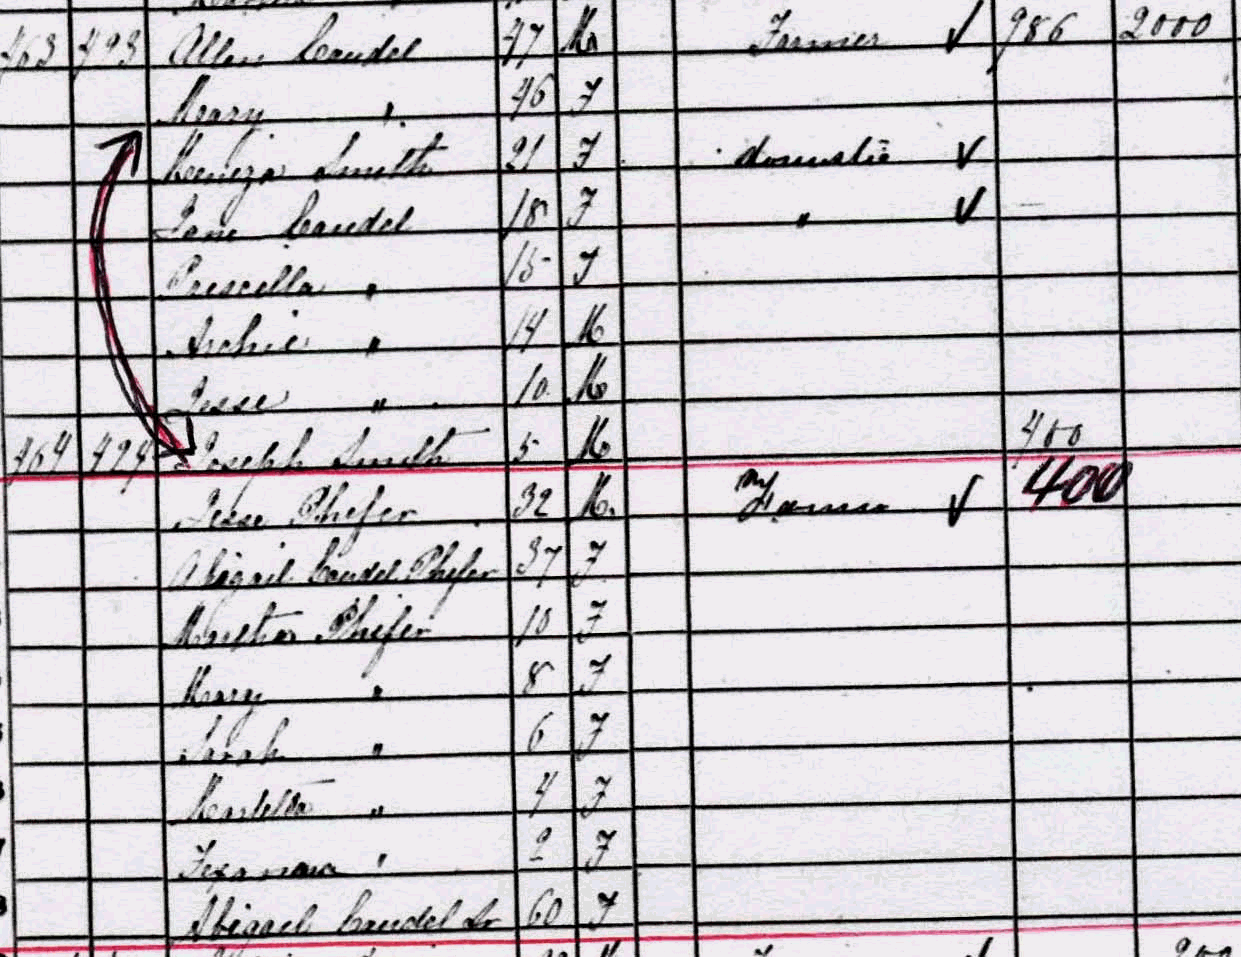 463 493 Allen Caudel 47 M Farmer ✓ 986 2000
Meary " 46 F
Smith 21 F domestic ✓
Jane Caudel 18 F " ✓
Prescella " 15 F
Archie " 14 M
Jesse " 10 M
464 494 Joseph Smith 5 M 400
Jesse Phifer 32 M Farmer ✓ 400
Abigail Caudel Phifer 37 F
Phifer 10 F
Meary " 8 F
Sarah " 6 F
" 4 F
" 2 F
Abigael Caudel Sr 60 F